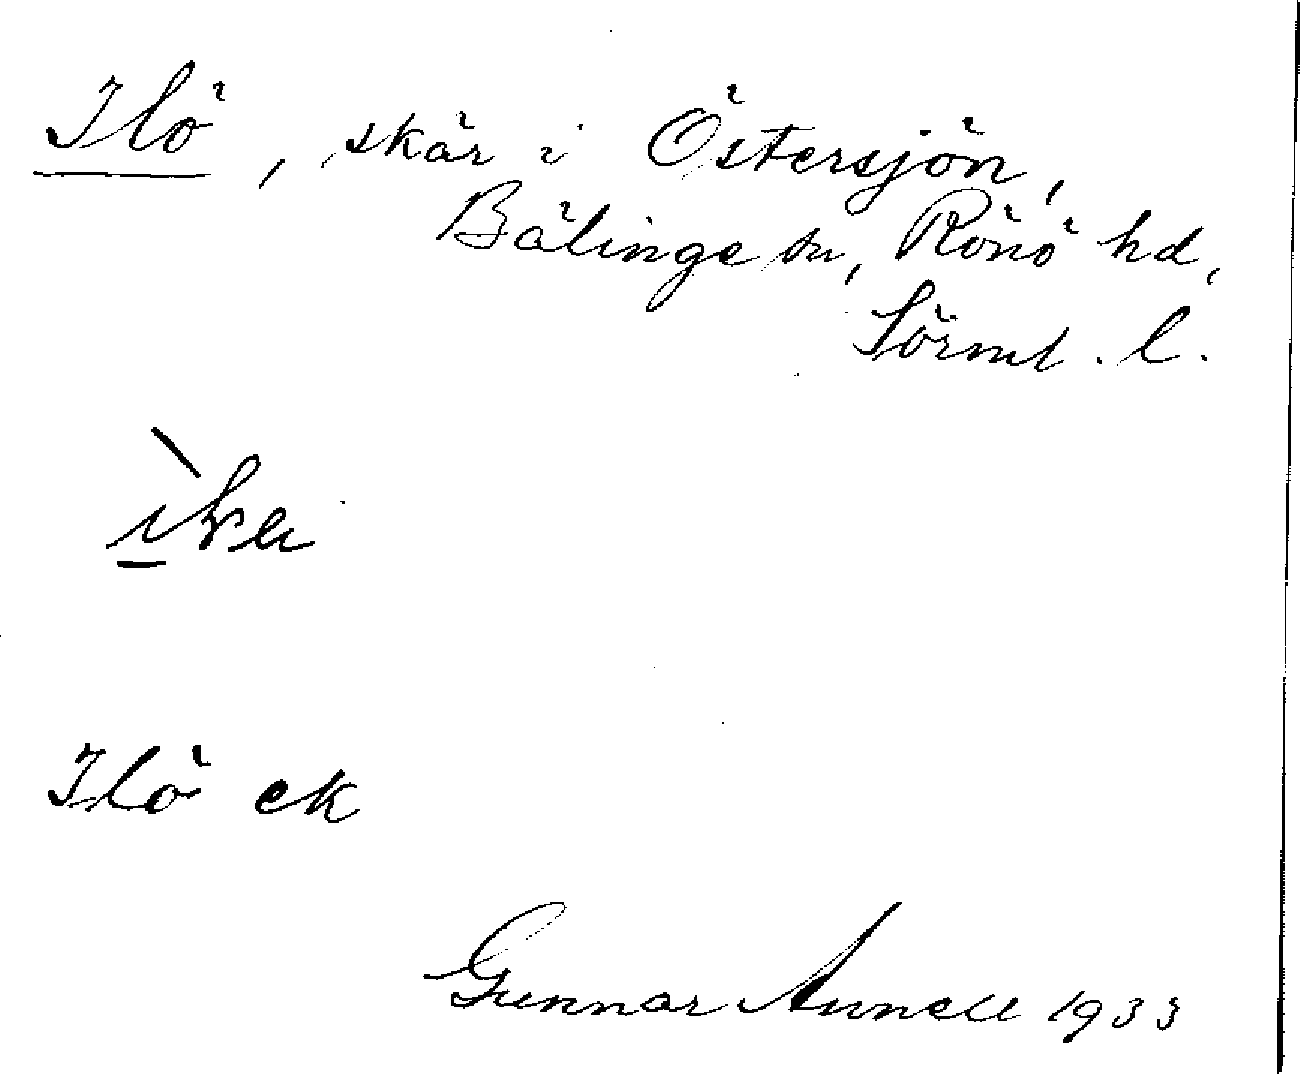 Ilö, skär i Östersjön,
Bälinge sn, Rönö hd,
Sörml. l.
Ilö ek
Gunnar Annell 1933